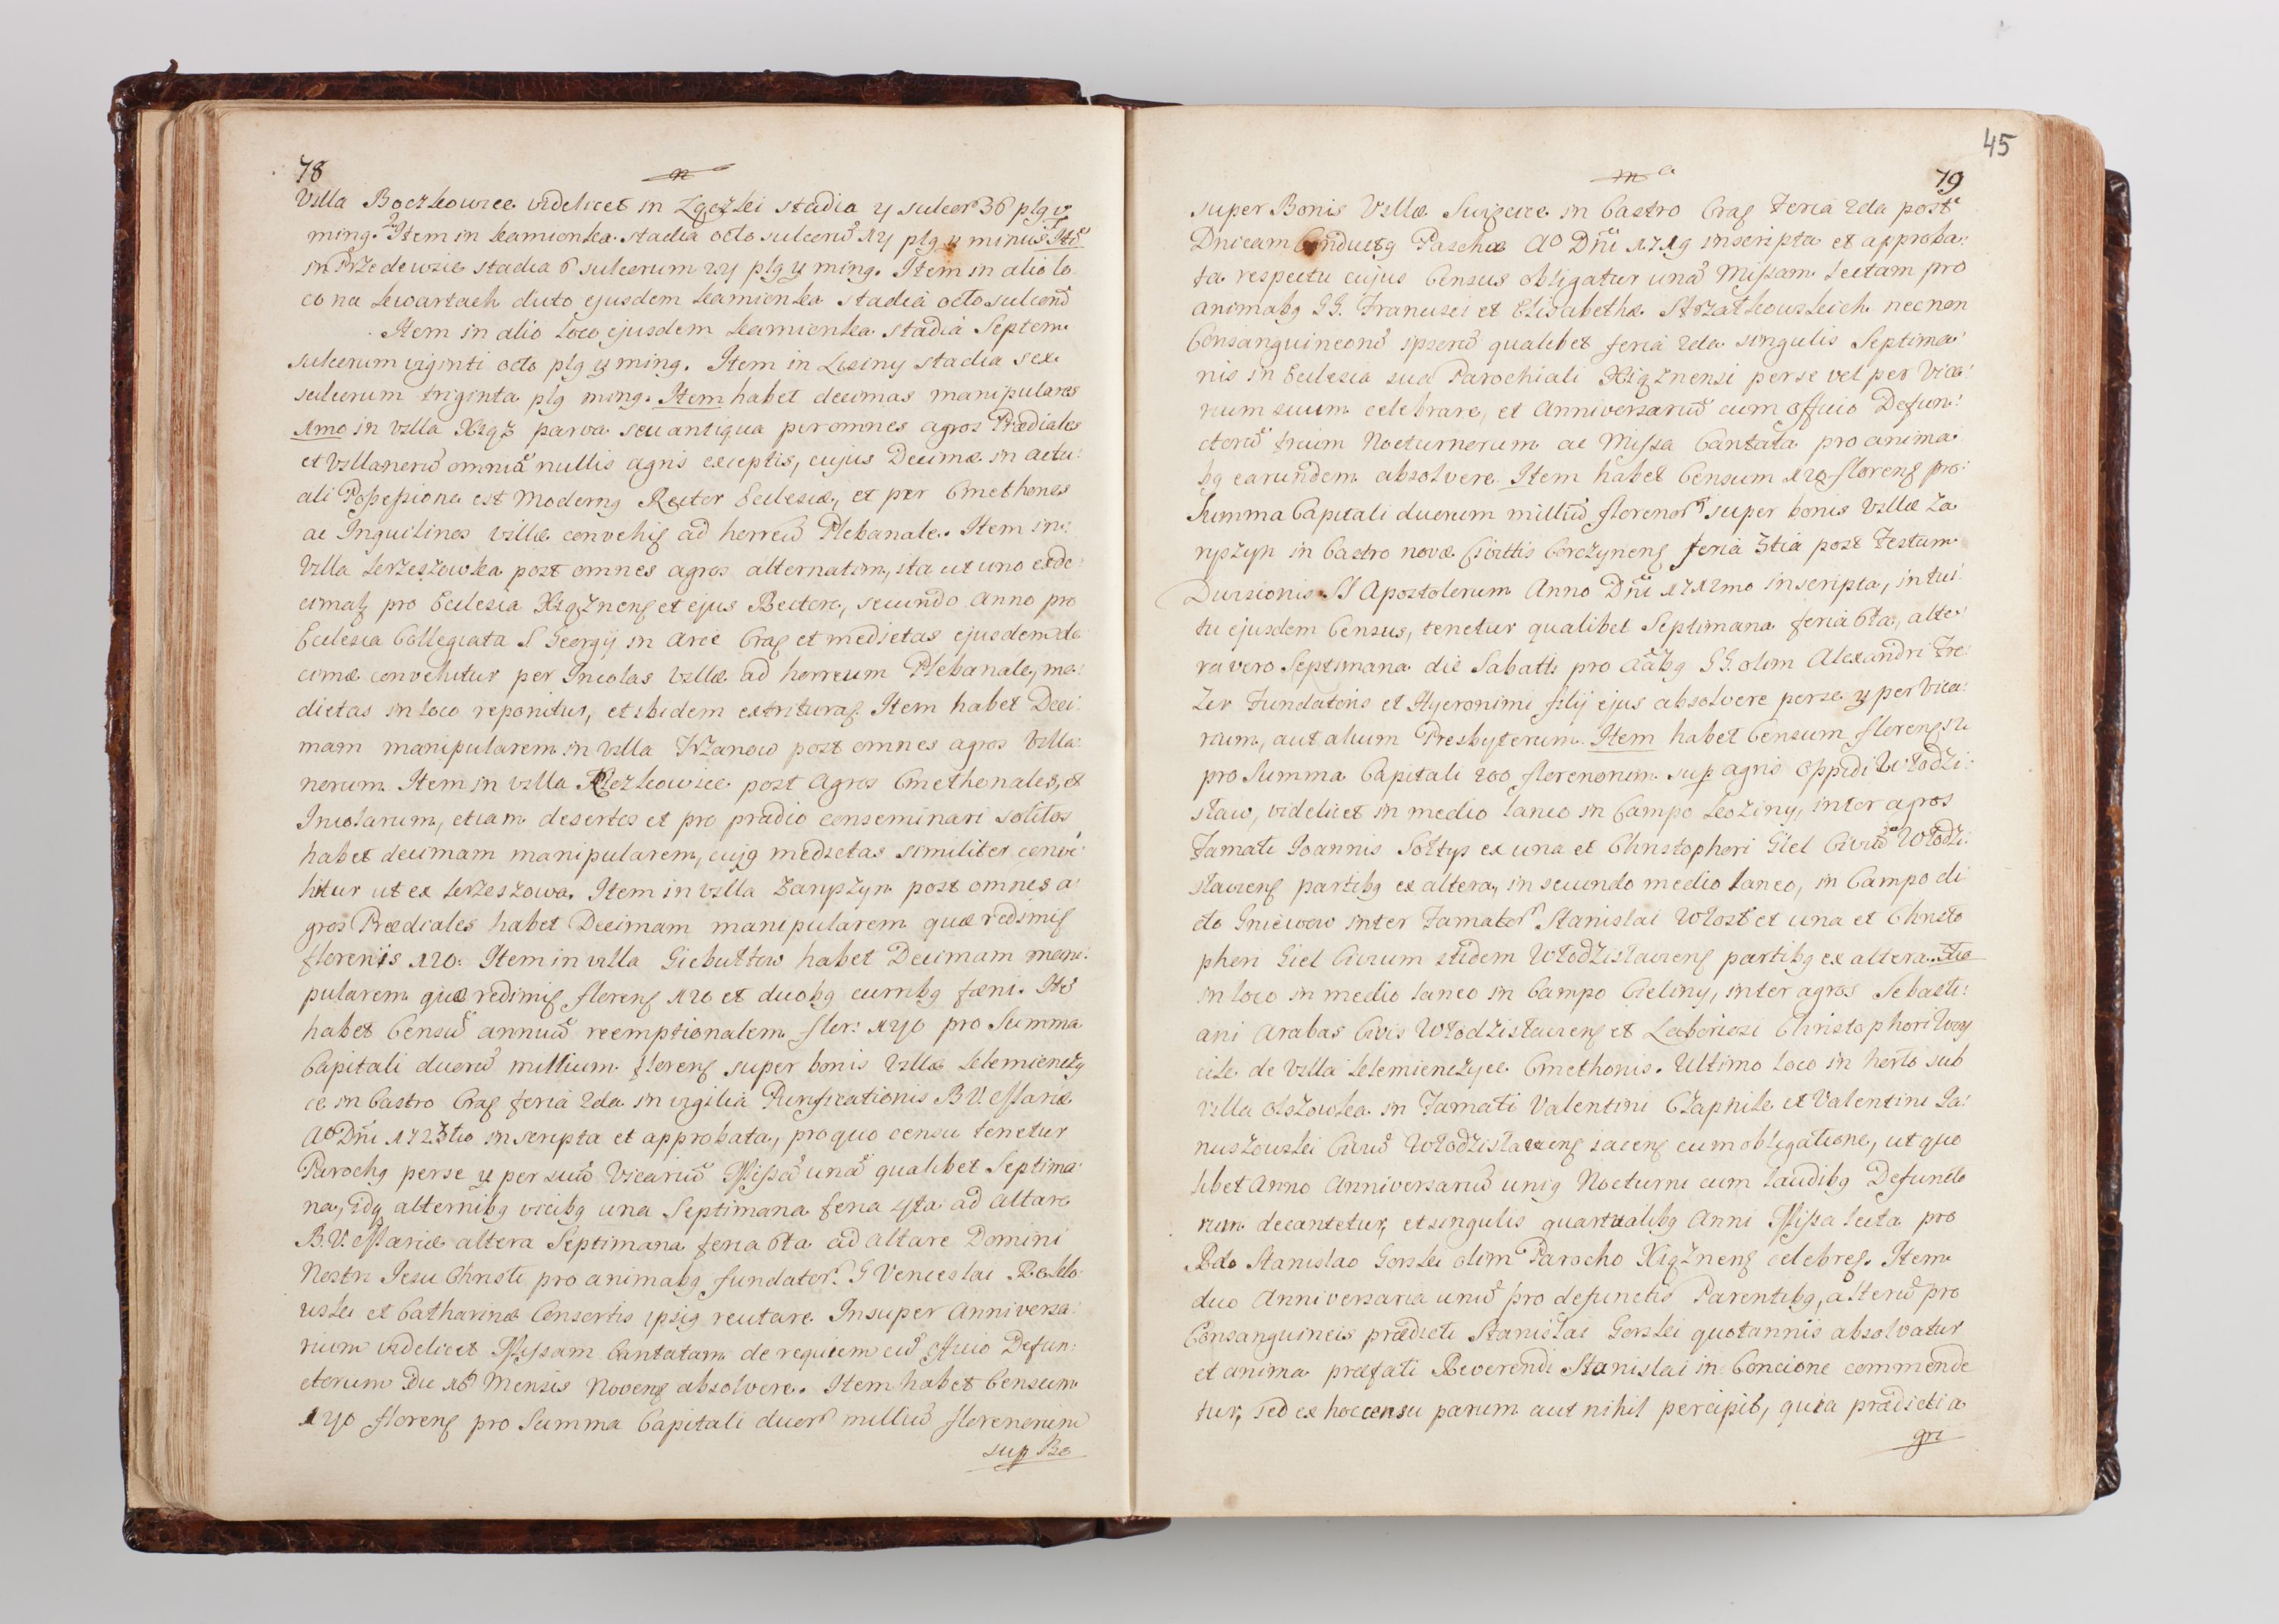 78
Villa Boczkowice videlicet in Zgęzki stadia 4 sulcor 36 plg v
ming. Item in Kamionka stadia octo sulcorũ 14 plg v minus Itẽ
in Przedewsie stadia 6 sulcorum 24 plg v ming. Item in alio lo
co na kwartach dicto ejusdem Kamionka stadia octo sulcorũ
Item in alio Loco ejusdem Kamionka stadia Septem
sulcorum viginti octo plg v ming. Item in Losiny stadia sex
sulcorum triginta plg ming. Item habet decimas manipulares
1mo in villa Xiąz parva seu antiqua per omnes agros Prædiales
et Villanorũ omniũ nullis agris exceptis, cujus Decimæ in actu:
ali Possessione est Moderng Rector Ecclesiæ, et per Cmethones
ac Inquilinos villæ convehiʒ ad horreũ Plebanale. Item in:
Villa Krzeszowka post omnes agros alternatim, ita ut uno exde:
cimatʒ pro Ecclesia Xiąznenʒ et ejus Rectore, secundo Anno pro
Ecclesia Collegiata S Georgij in Arce Craʒ et medietas ejusdem de
cimæ convehitur per Incolas Villæ ad horreum Plebanale, me:
dietas in loco reponitur, et ibidem extrituraʒ. Item habet Deci:
mam manipularem in Villa Trzanow post omnes agros Villa:
norum. Item in villa Kłozkowice post Agros Cmethonales, et
Incolarum, etiam desertos et pro prædio conseminari solitos
habet decimam manipularem, cujg medietas similiter conve:
hitur ut ex Krzeszowa. Item in villa Zaryszyn post omnes a:
gros Prædiales habet Decimam manipularem quæ redimiʒ
florenis 120. Item in villa Giebułtow habet Decimam mani:
pularem quæ redimiʒ florenʒ 120 et duobg curribg fæni. Itẽ
habet Censũ annuũ reemptionalem flor: 140 pro Summa
Capitali duorũ millium florenʒ super bonis Villæ Klemiencży
ce in Castro Craʒ feria 2da in vigilia Purificationis B.V. Mariæ
Aº Dñi 1723tio inscripta et approbata, pro quo censu tenetur
Parochg per se v per suũ Vicariũ Missã unã qualibet Septima:
na, idq alternibg vicibg una Septimana feria 4ta ad Altare
B.V. Mariæ altera Septimana feria 6ta ad altare Domini
Nostri Jesu Christi pro animabg fundator. G Venceslai
uski et Catharinæ Consortis ipsig recitare. Insuper Anniversa:
rium videlicet Missam Cantatam de requiem cũ officio Defun:
ctorum Die 16 Mensis Novenʒ absolvere. Item habet Censum
140 florenʒ pro Summa Capitali duor milliũ florenorum
sup Bo
45
79
super Bonis Villæ Swięcice in Castro Craʒ Feria 2da post
Dnicam Conductg Paschæ Aº Dñi 1719 inscripta et approba:
ta respectu cujus Census obligatur unã Missam lectam pro
animabg GG. Francisci et Elisabethæ Strzałkowskich necnon
Consanguineorũ ipsorũ qualibet feria 2da singulis Septima:
nis in Ecclesia sua Parochiali Xiąznensi per se vel per Vica:
rium suum celebrare, et Anniversariũ cum officio Defun:
ctorũ trium Nocturnorum ac Missa Cantata pro anima
bg earundem absolvere. Item habet Censum 120 florenʒ pro:
Summa Capitali duorum milliũ florenor super bonis Villæ Za
ryszyn in Castro novæ Civittis Korczynenʒ feria 3tia post Festum
Divisionis SS Apostolorum Anno Dñi 1712mo inscripta, intui:
tu ejusdem Census, tenetur qualibet Septimana feria 6ta, alte:
ra vero Septimana die Sabatti pro aãbg GG. olim Alexandri Fre:
zer Fundatoris et Hyeronimi filij ejus absolvere per se v per Vica:
rium, aut alium Presbyterum. Item habet Censum florenʒ 12
pro Summa Capitali 200 florenorum sup agris Oppidi Włodzi:
sław, videlicet in medio laneo in Campo Koziny, inter agros
Famati Joannis Sołtys ex una et Christopheri Giel Civiũ Włodzi:
slavienʒ partibg ex altera, in secundo medio laneo, in Campo di
cto Gniewow inter Famator Stanislai Włost et una et Christo
pheri Giel Civium itidem Włodzislavienʒ partibg ex altera. 3tio
in loco in medio laneo in Campo Cieliny, inter agros Sebasti:
ani Arabas Civis Włodzislavienʒ et Laboriosi Christophori Woy
cik de Villa Klemienczyce Cmethonis. Ultimo loco in horto sub
villa Olszowka in Famati Valentini Czaphik et Valentini Ja:
nuszowski Civiũ Włodzislavienʒ iacenʒ cum obligatione, ut quo
libet Anno Anniversariũ unig Nocturni cum laudibg Defuncto
rum decantetur, et singulis quartualibg Anni Missa lecta pro
Rdo Stanislao Gorski olim Parocho Xiąznenʒ celebreʒ. Item
duo Anniversaria unũ pro defunctis Parentibg, alterũ pro
Consanguineis prædicti Stanislai Gorski quotannis absolvatur
et anima præfati Reverendi Stanislai in Concione commende
tur, sed ex hoc censu parum aut nihil percipit, quia prædicti a
gri